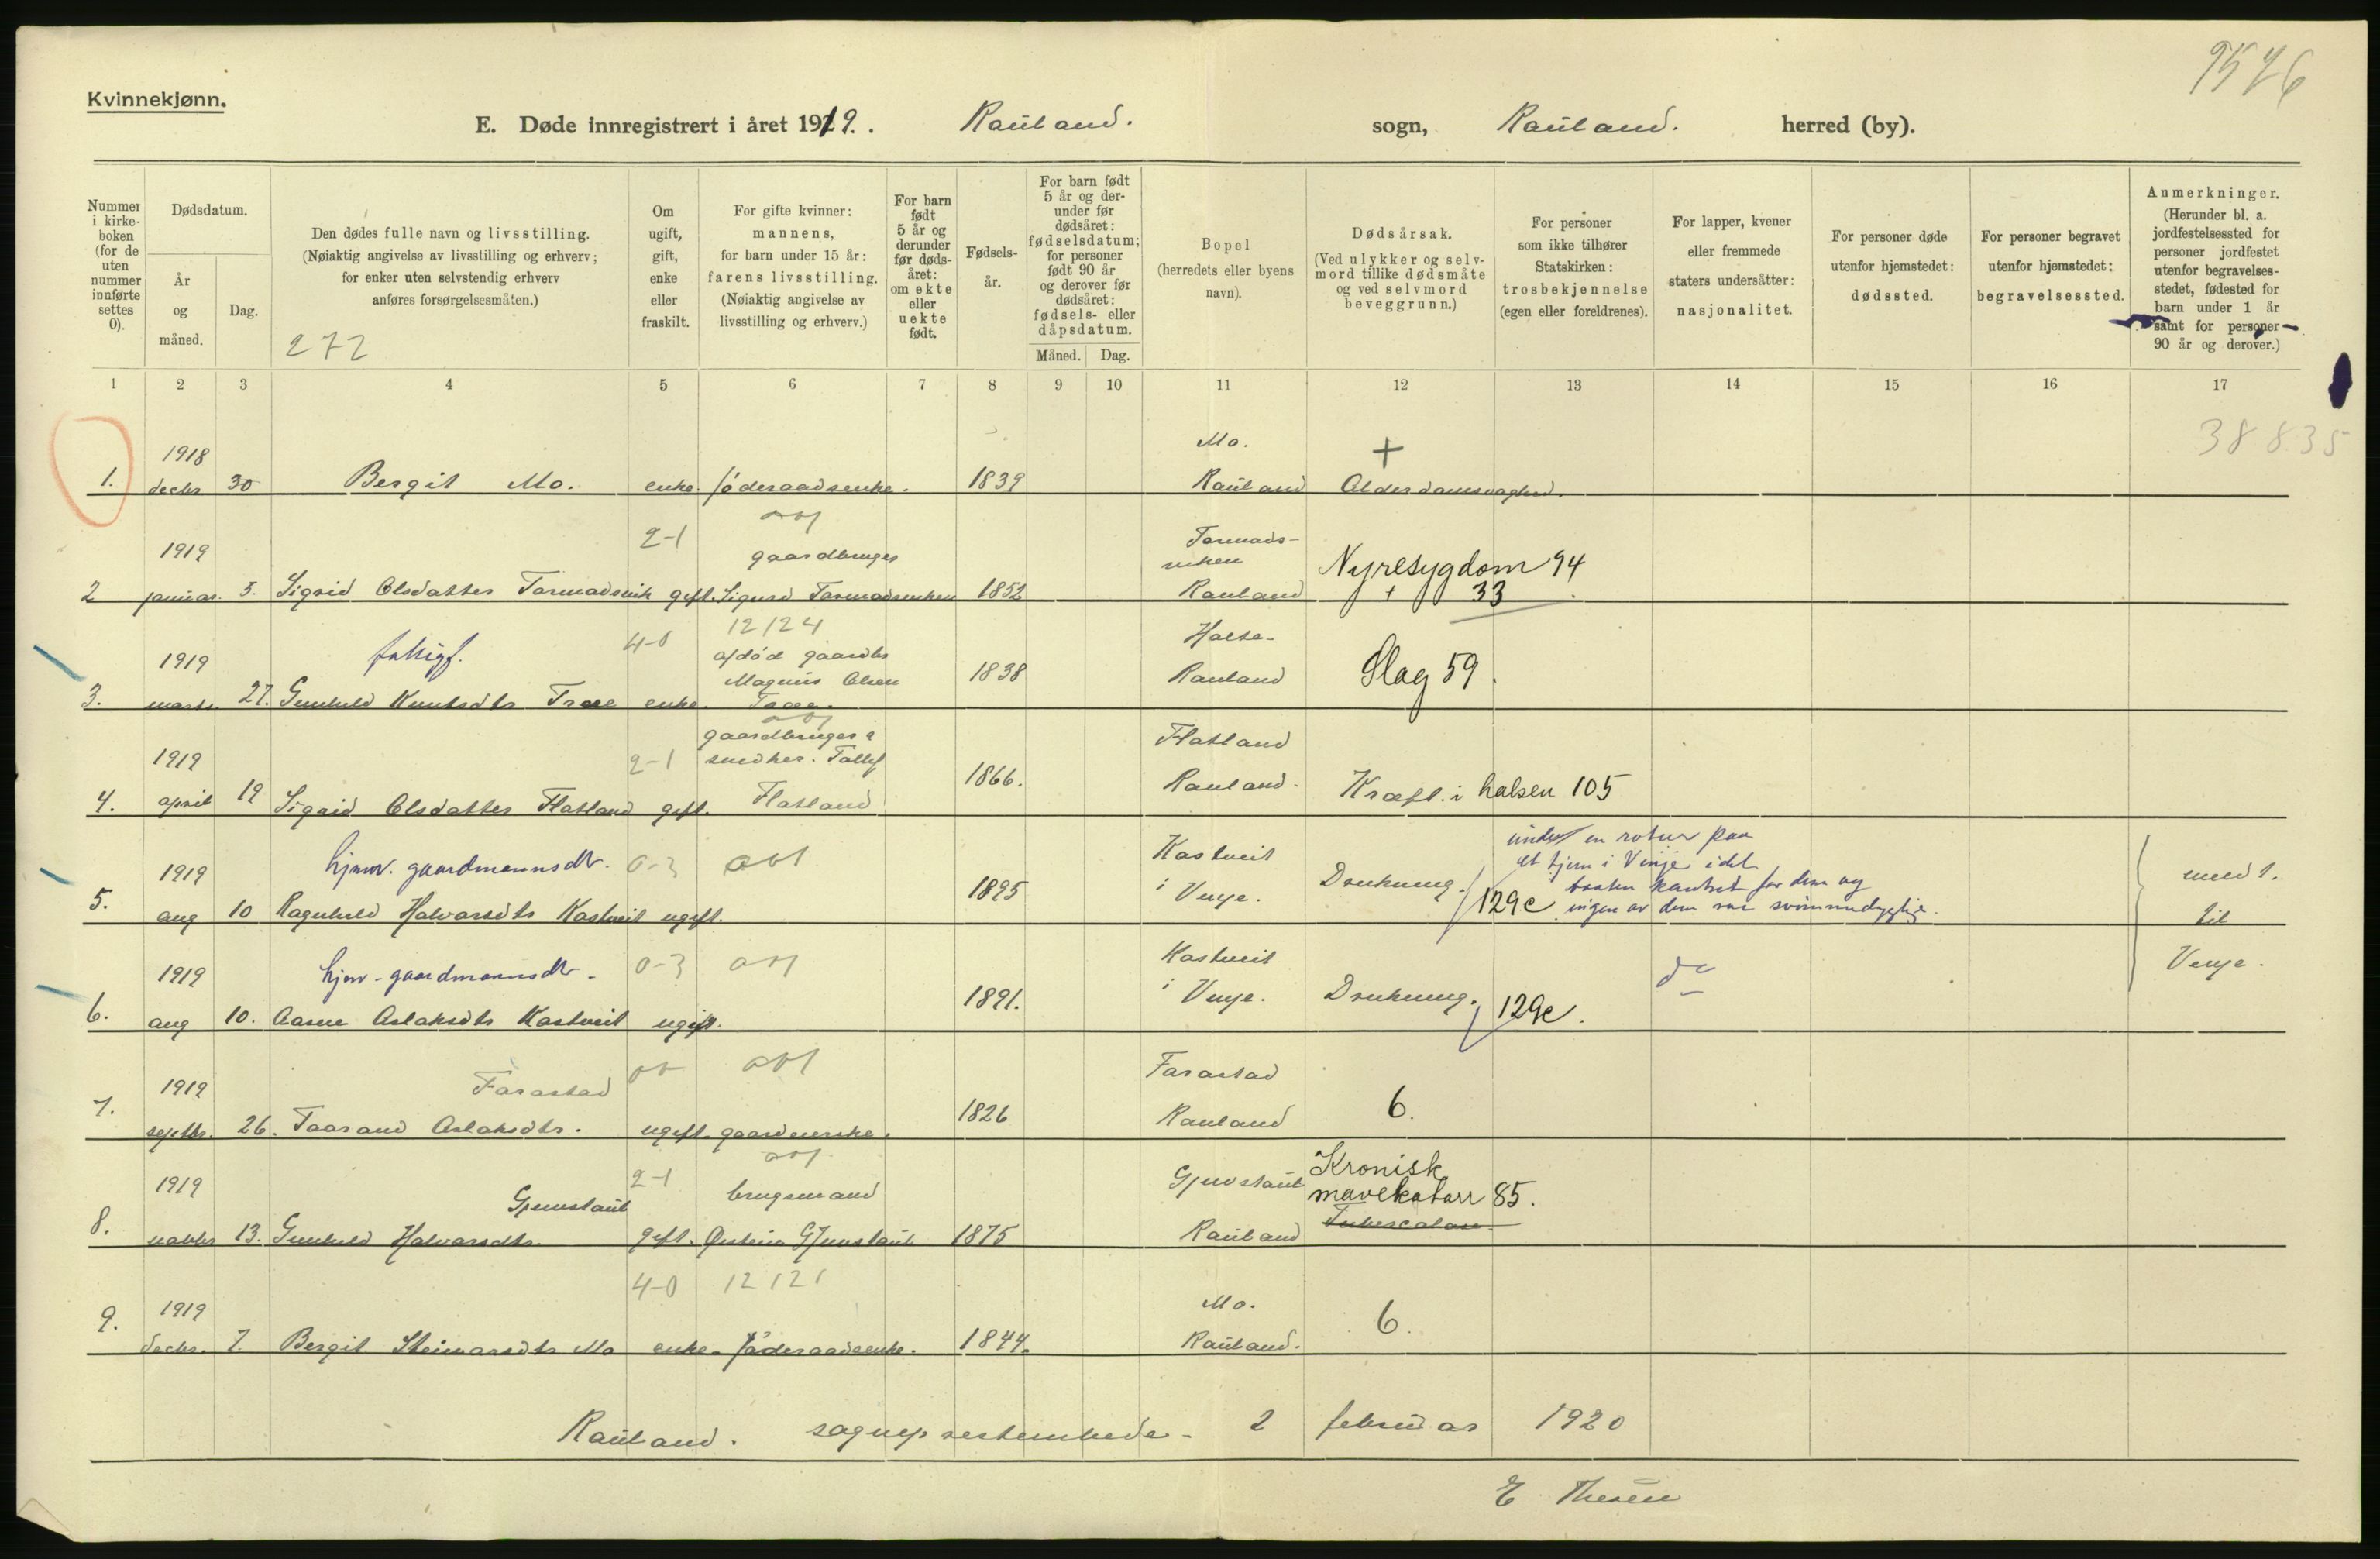 Kvinnekjønn.
E. Døde innregistrert i året 1919. Rauland. sogn, Rauland. herred (by).
Nummer i kirke-boken (for de uten nummer innførte settes 0).
Dødsdatum.
År og måned.
Dag.
Den dødes fulle navn og livsstilling.
(Nøiaktig angivelse av livsstilling og erhverv;
for enker uten selvstendig erhverv
anføres forsørgelsesmåten.)
272
Om ugift, gift, enke eller fraskilt.
For gifte kvinner:
mannens,
for barn under 15 år:
farens livsstilling.
(Nøiaktig angivelse av
livsstilling og erhverv.)
For barn født 5 år og derunder før døds-året: om ekte eller uekte født.
Fødsels-år.
For barn født 5 år og der-under før dødsåret: fødselsdatum; for personer født 90 år og derover før dødsåret: fødsels- eller dåpsdatum.
Måned. Dag.
Bopel
(herredets eller byens
navn).
Dødsårsak.
(Ved ulykker og selv-
mord tillike dødsmåte
og ved selvmord
beveggrunn.)
For personer
som ikke tilhører
Statskirken:
trosbekjennelse
(egen eller foreldrenes).
For lapper, kvener
eller fremmede
staters undersåtter:
nasjonalitet.
For personer døde
utenfor hjemstedet:
dødssted.
For personer begravet
utenfor hjemstedet:
begravelsessted.
Anmerkninger.
(Herunder bl. a.
jordfestelsessted for
personer jordfestet
utenfor begravelses-
stedet, fødested for
barn under 1 år
samt for personer
90 år og derover.)
1 2 3 4 5 6 7 8 9 10 11 12 13 14 15 16 17
38835
1918 Mo. +
1. decbr 30 Bergit Mo. enke. föderaadsenke. 1839 Rauland Alderdomssvaghed.
2-1
1919 gaardbruger
2 januar. 3. Sigrid Olsdatter gift. Sigurd 1852 Rauland Nyresygdom 94 + 33
4-0 12124
1919 fattigf. afdöd gaardbr
Magnus Olsen
3. marts. 27. Gunhild Knutsdtr Traae enke. Traae. 1838 Rauland Slag 59.
1919 2-1 gaardbruger & Flatland
4. april 19 Sigrid Olsdatter Flatland gift. Flatland 1866. Rauland. Kræft. i halsen 105
1919 hjemv. gaardmannsdtr. 0-3 Kastveit
5. aug 10 Ragnhild Halvorsdtr Kastveit ugift. 1895 i Vinje. Drukning. 129c
under en rotur paa
et tjern i Vinje idet
baaten kantret for dem og
ingen av dem var svømmedygtig.
1919 hjemv. gaardmannsdtr. 0-3 Kastveit
6. aug 10. Aasne Aslaksdtr Kastveit ugift. 1891. i Vinje. Drukning. 129c. do
til
Vinje.
1919 Farastad Farastad
7. septbr. 26. Taarand Aslaksdtr. ugift. 1826 Rauland 6.
1919 2-1 brugsmand Kronisk
mavekatarr 85.
8. novbr 13. Gunhild Halvorsdtr. gift. 1875 Rauland Tuberculose.
4-0 12121
1919 Mo. 6.
9. decbr. 7. Bergit Steinarsdtr Mo enke. föderaadsenke. 1844. Rauland.
Rauland. sogneprestembede - 2 februar 1920